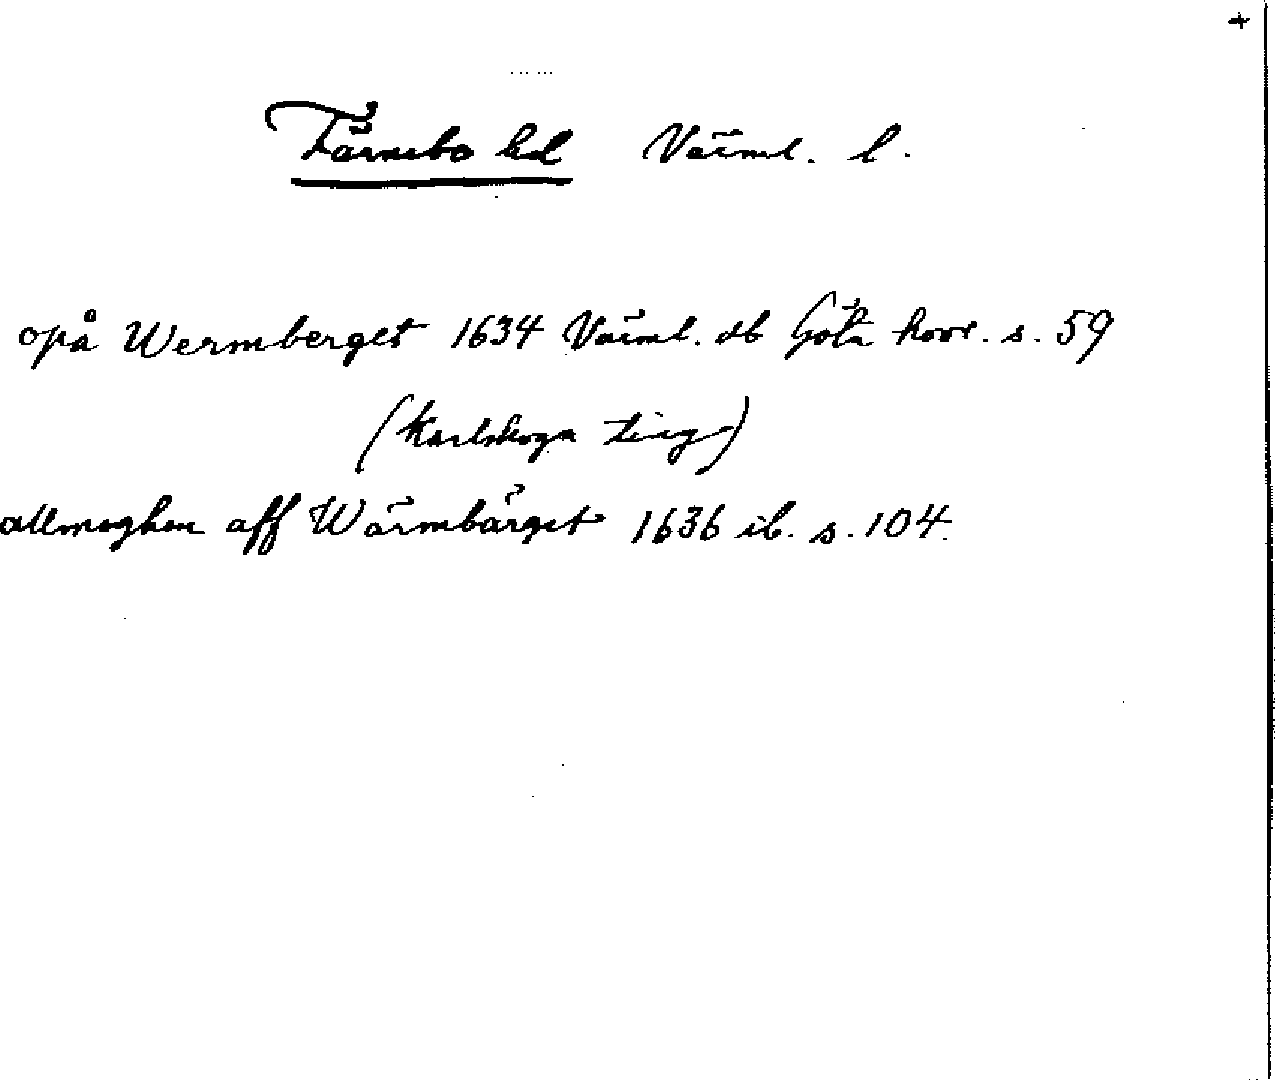 +
Färnebo hd Värml. l.
opå Wermberget 1634 Värml. db Göta hovr. s. 59
(Karlskoga ting)
allmoghen aff Wärmbärget 1636 ib. s. 104.